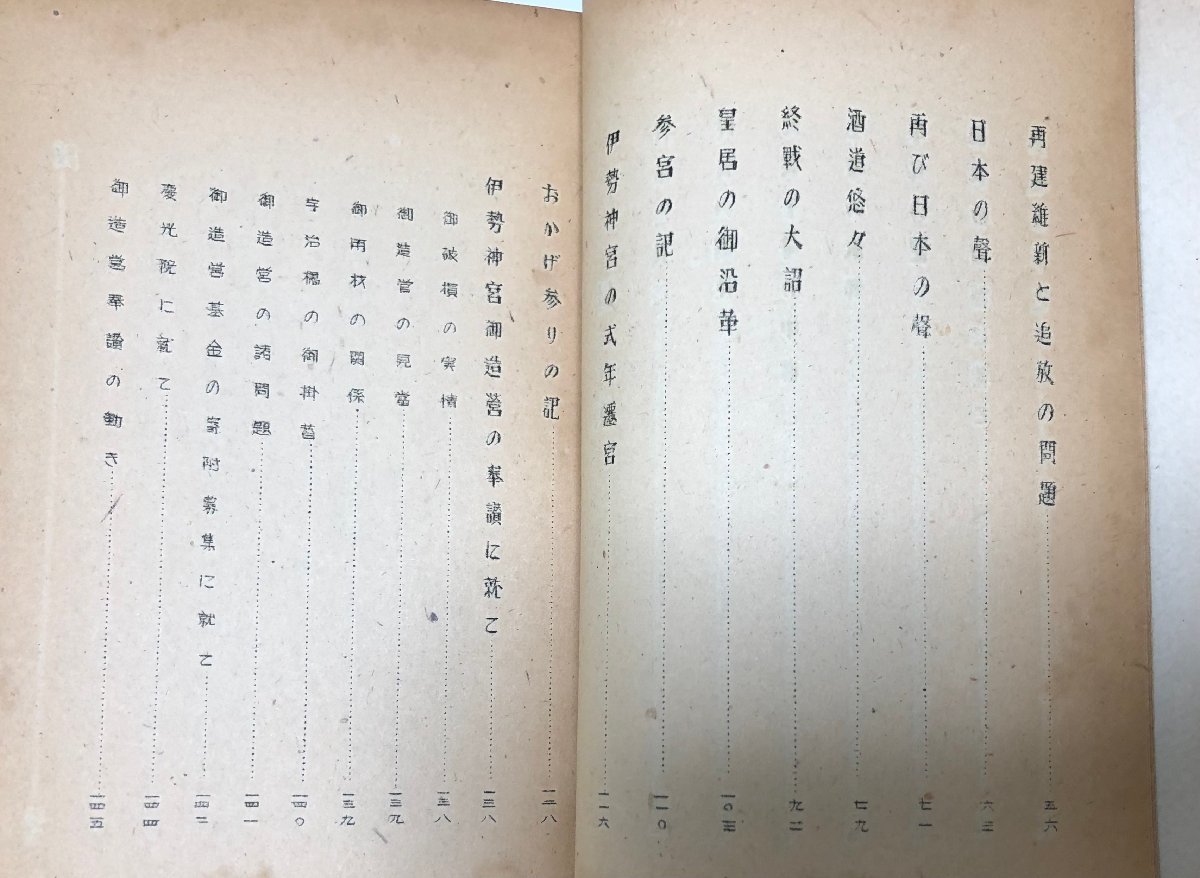 再建維新と追放の問題……五六
日本の聲……六三
再び日本の聲……七一
酒道悠々……七九
終戰の大詔……九二
皇居の御沿革……一〇三
参宮の記……一一〇
伊勢神宮の式年遷宮……一一六
おかげ参りの記……一二八
伊勢神宮御造営の奉讃に就て……一三八
御破損の実情……一三八
御造営の見當……一三九
御用材の関係……一三九
宇治橋の御掛替……一四〇
御造営の諸問題……一四一
御造営基金の寄附募集に就て……一四二
慶光院に就て……一四四
御造営奉讃の動き……一四五